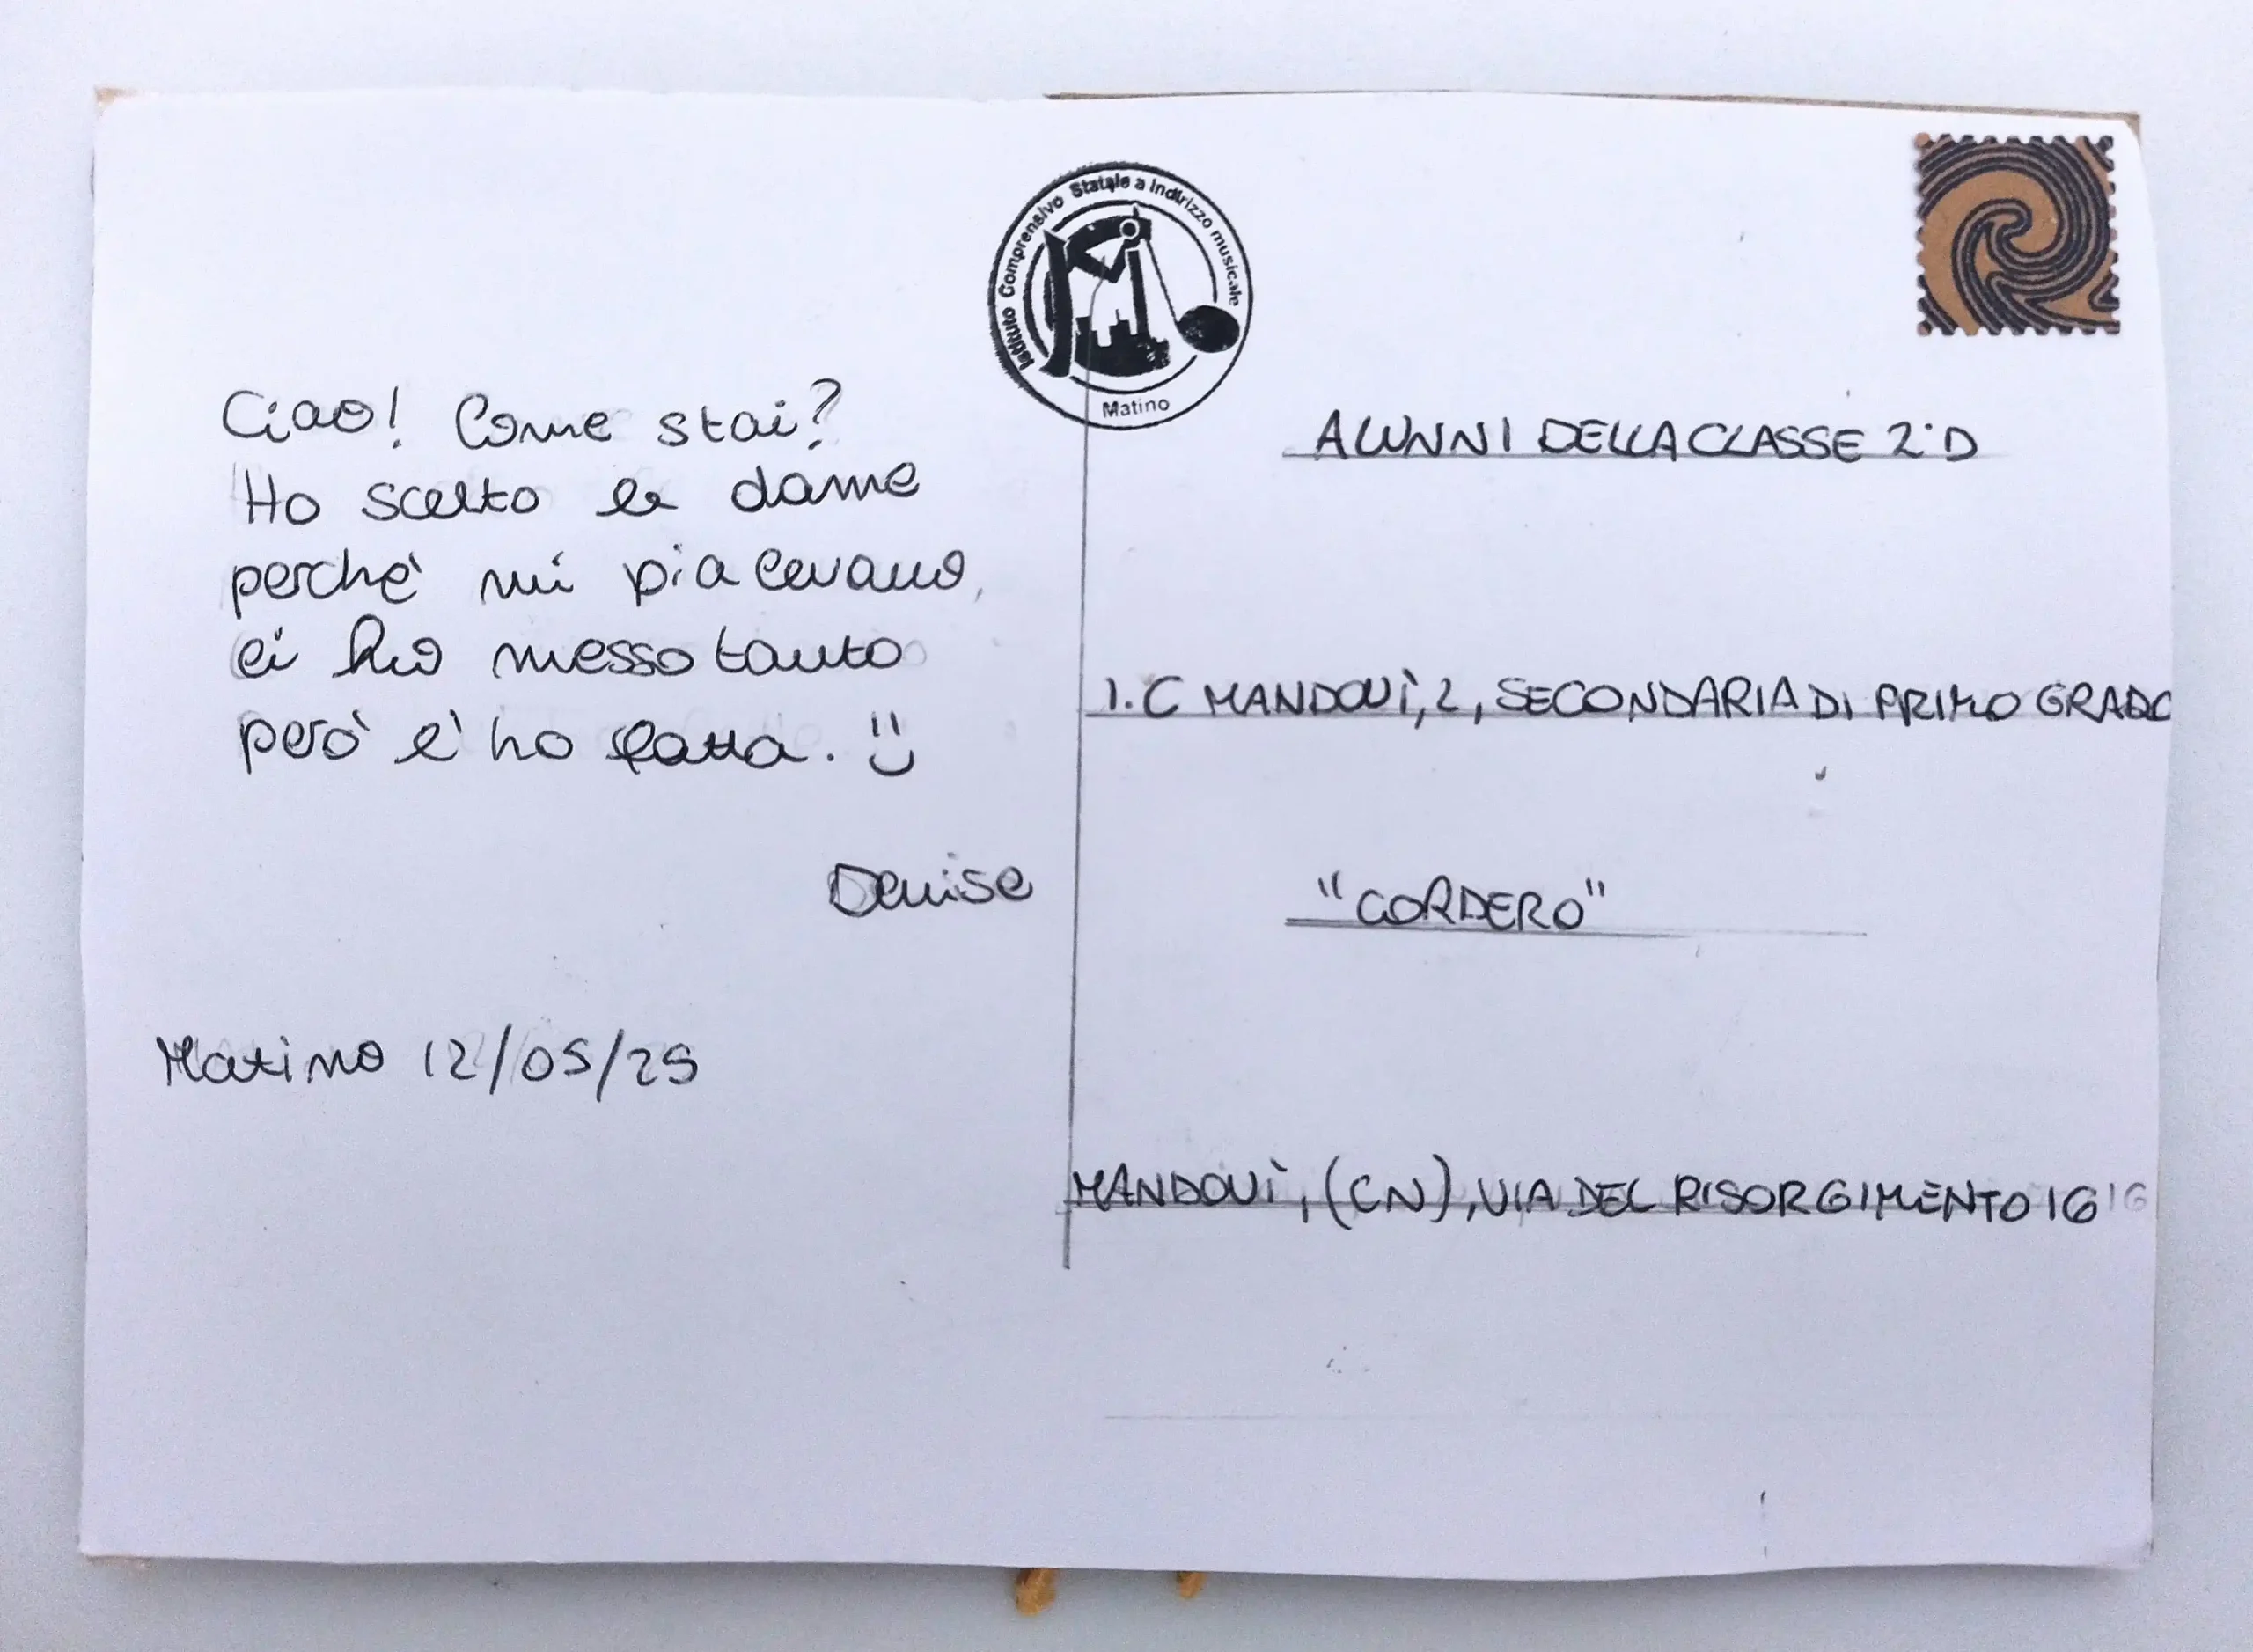 Istituto Comprensivo Statale a indirizzo musicale
Matino
Ciao! Come stai?
Ho scelto le dame
perchè mi piacevano,
ci ho messo tanto
però l'ho fatta. :)
Denise
Matino 12/05/25
ALUNNI DELLA CLASSE 2°D
I.C MANDOVÌ, 2, SECONDARIA DI PRIMO GRADO
"CORDERO"
MANDOVÌ, (CN), VIA DEL RISORGIMENTO 16 16